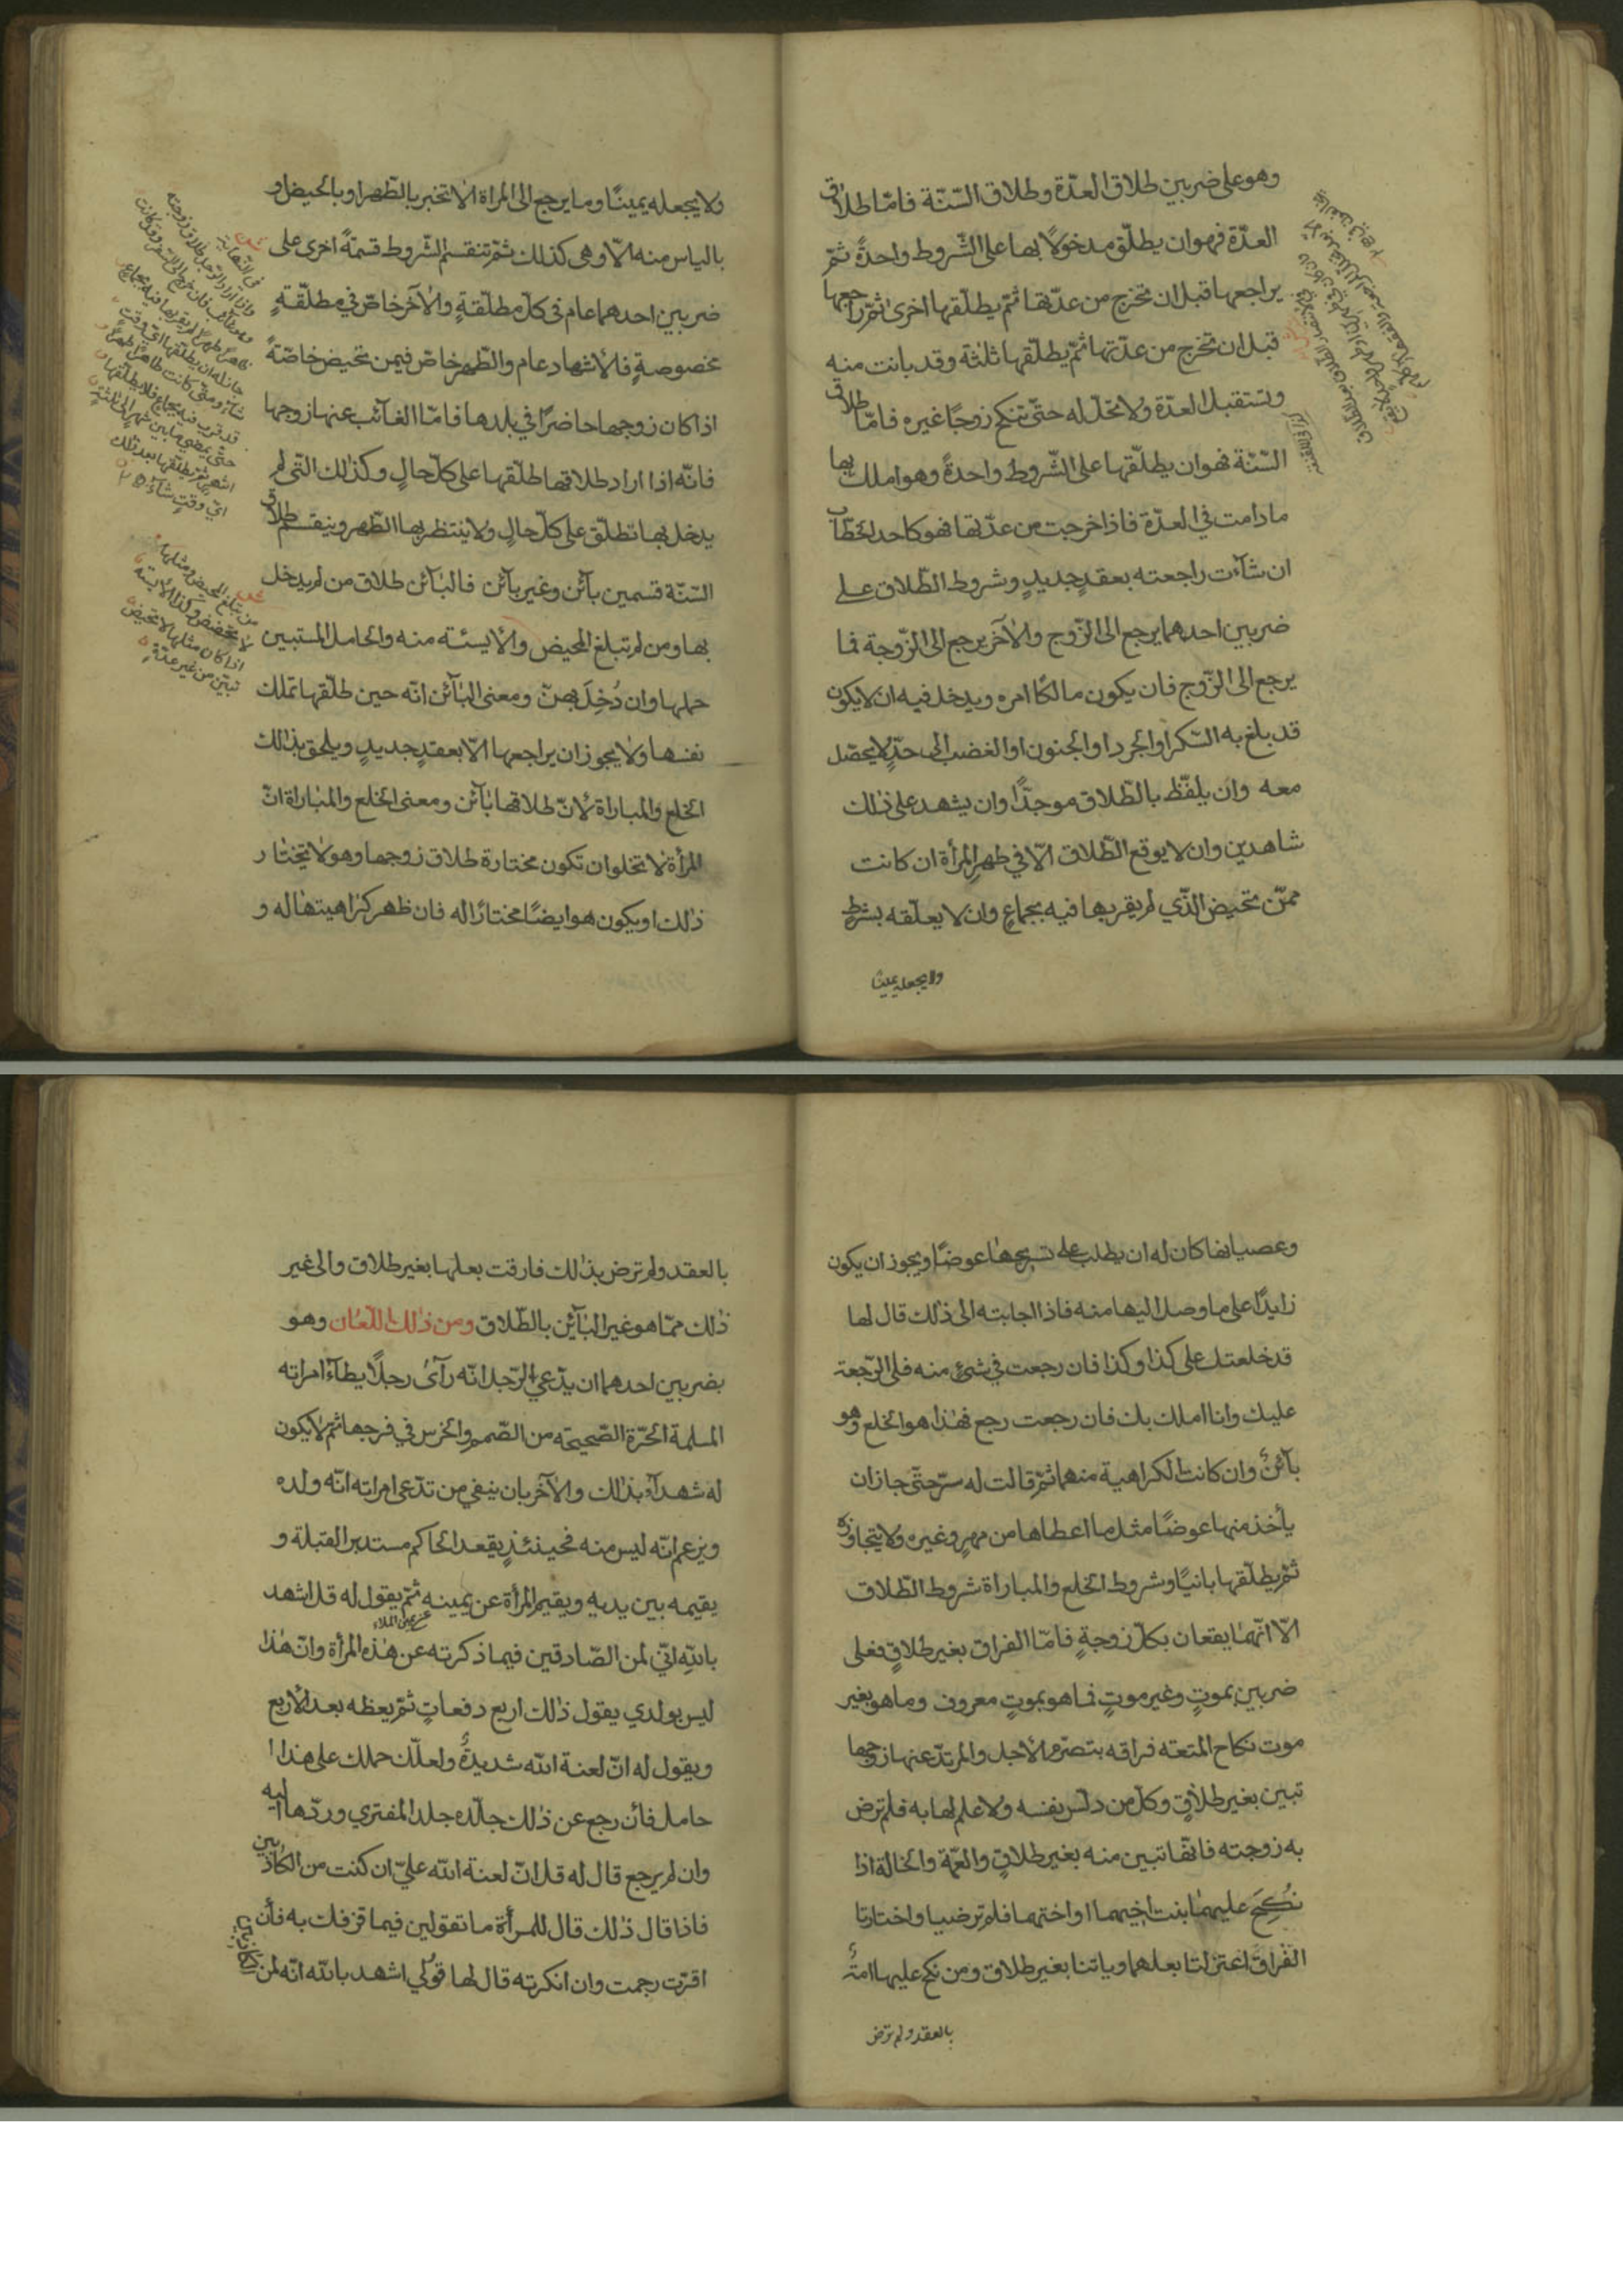 وهو على ضربين طلاق العدّة وطلاق السّنّة فامّا طلاق
العدّة فهو ان يطلّق مدخولًا بها على الشّروط واحدةً ثمّ
يراجعها قبل ان تخرج من عدّتها ثمّ يطلّقها اخرى ثمّ راجعها
قبل ان تخرج من عدّتها ثمّ يطلّقها ثلثة وقد بانت منه
وتستقبل العدّة ولا تحلّ له حتّى تنكح زوجًا غيره فامّا طلاق
السّنّة فهو ان يطلّقها على الشّروط واحدةً وهو املك بها
ما دامت في العدّة فاذا خرجت من عدّتها فهو كاحد الخطّاب
ان شاءت راجعته بعقدٍ جديدٍ وشروط الطّلاق على
ضربين احدهما يرجع الى الزّوج والآخر يرجع الى الزّوجة فما
يرجع الى الزّوج فان يكون مالكًا امره ويدخل فيه ان لا يكون
قد بلغ به السّكر او الحرد او الجنون او الغضب الى حدّ لا يحصّل
معه وان يلفّظ بالطّلاق موحدًا وان يشهد على ذلك
شاهدين وان لا يوقع الطّلاق الّا في طهر المرأة ان كانت
ممّن تحيض الّذي لم يقربها فيه بجماعٍ وان لا يعلّقه بشرطٍ
ولا يجعله يمينًا
ولا يجعله يمينًا وما يرجع الى المراة الا تخبر بالطّهر او بالحيض او
بالياس منه الّا وهى كذلك ثمّ تنقسم الشّروط قسمةً اخرى على
ضربين احدهما عام فى كلّ مطلّقةٍ والآخر خاصّ في مطلّقةٍ
مخصوصةٍ فالاشهاد عام والطّهر خاصّ فيمن تحيض خاصّة
اذا كان زوجها حاضرًا في بلدها فامّا الغائب عنها زوجها
فانّه اذا اراد طلاقها طلّقها على كلّ حالٍ وكذلك الّتى لم
يدخل بها تطلّق على كلّ حالٍ ولا ينتظر بها الطّهر وينقسم طلاق
السّنّة قسمين بآئن وغير بآئن فالبآئن طلاق من لم يدخل
بها ومن لم تبلغ المحيض والايسة منه والحامل المستبين
حملها وان دُخِلَ بهنّ ومعنى البآئن انّه حين طلّقها تملك
نفسها ولا يجوز ان يراجعها الّا بعقدٍ جديدٍ ويلحق بذلك
الخلع والمباراة لانّ طلاقها بآئن ومعنى الخلع والمباراة انّ
المرأة لا تخلو ان تكون مختارة طلاق زوجها وهو لا يختار
ذلك او يكون هو ايضًا مختارًا له فان ظهر كراهيتها له و
وعصيانها كان له ان يطلب على تسريحها عوضًا ويجوز ان يكون
زايدًا على ما وصل اليها منه فاذا اجابته الى ذلك قال لها
قد خلعتك على كذا وكذا فان رجعت في شئ منه فلى الرّجعة
عليك وانا املك بك فان رجعت رجع فهذا هو الخلع وهو
بآئن وان كانت الكراهية منهما ثمّ قالت له سرّحنى جاز ان
يأخذ منها عوضًا مثل ما اعطاها من مهرٍ وغيره ولا يتجاوزه
ثمّ يطلّقها بانيًا وشروط الخلع والمباراة شروط الطّلاق
الّا انّهما يقعان بكلّ زوجةٍ فامّا الفراق بغير طلاقٍ فعلى
ضربين بموتٍ وغير موتٍ فما هو بموتٍ معروف وما هو بغير
موت نكاح المتعه فراقه بتصرّم الاجل والمرتدّ عنها زوجها
تبين بغير طلاقٍ وكلّ من دلّس نفسه ولا علم لها به فلم ترض
به زوجته فانّها تبين منه بغير طلاقٍ والعمّة والخالة اذا
نُكِحَ عليهما بنت اخيهما او اختهما فلم ترضيا واختارتا
الفراق اعتزلتا بعلهما وباتنا بغير طلاق ومن نكح عليها امةً
بالعقد ولم ترض
بالعقد ولم ترض بذلك فارقت بعلها بغير طلاق والى غير
ذلك ممّا هو غير البآئن بالطّلاق ومن ذلك اللّعان وهو
بضربين احدهما ان يدّعي الرّجل انّه رآى رجلًا يطاء امراته
المسلمة الحرّة الصّحيحة من الصّمم والخرس في فرجها ثمّ لا يكون
له شهدآء بذلك والآخر بان ينفي من تدّعى امراته انّه ولده
ويزعم انّه ليس منه فحينئذٍ يقعد الحاكم مستدبر القبلة و
يقيمه بين يديه ويقيم المرأة عن يمينه ثمّ يقول له قل اشهد
بالله انّي لمن الصّادقين فيما ذكرته عن هذه المرأة وانّ هذا
ليس بولدي يقول ذلك اربع دفعاتٍ ثمّ يعظه بعد الاربع
ويقول له انّ لعنة الله شديدةٌ ولعلّك حملك على هذا
حامل فأن رجع عن ذلك جلّده جلد المفتري وردّها اليه
وان لم يرجع قال له قل انّ لعنة الله عليّ ان كنت من الكاذبين
فاذا قال ذلك قال للمرأة ما تقولين فيما قذفك به فأن
اقرّت رجمت وان انكرته قال لها قولي اشهد بالله انّه لمن الكاذبين